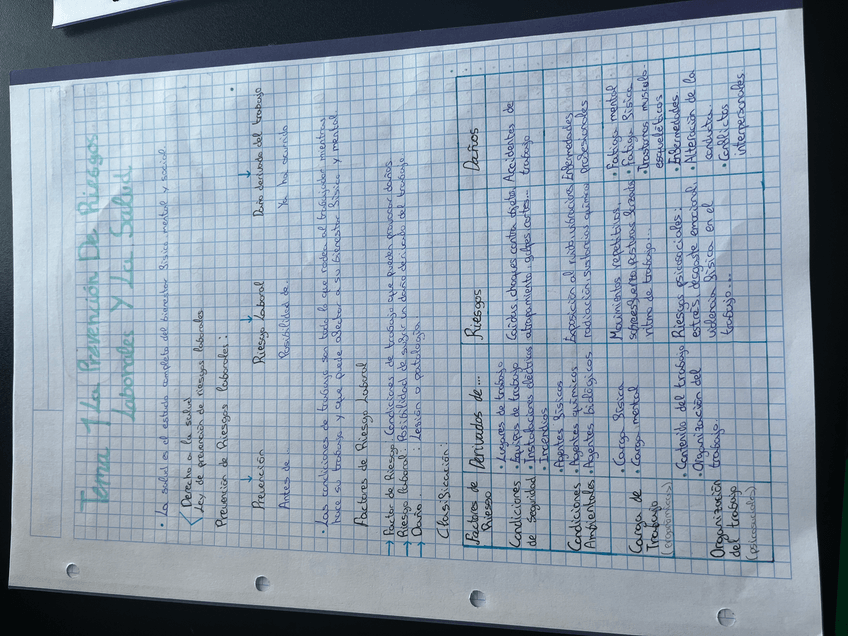 Tema 1 La Prevención De Riesgos
Laborales Y La Salud
• La salud es el estado completo del bienestar física mental y social.
Derecho a la salud
Ley de prevención de riesgos laborales
Prevención de Riesgos laborales:
Prevención Riesgo Laboral Daño derivado del trabajo
Antes de Posibilidad de. Ya ha ocurrido
Las condiciones de trabajo son todo lo que rodea al trabajador mientras
hace su trabajo y que puede afectar a su bienestar física y mental.
Factores de Riesgo Laboral
→ Factor de Riesgo: Condiciones de trabajo que pueden provocar daños
→ Riesgo laboral: Posibilidad de sufrir un daño derivado del trabajo.
→ Daño: Lesión o patología.
Clasificación:
Factores de Riesgo
Derivados de...
Riesgos
Daños
Condiciones de Seguridad
• Lugares de trabajo
• Equipos de trabajo
• Instalaciones eléctricas
• Incendios
Caídas, choques contra objetos
atrapamiento golpes cortes...
Accidentes de
trabajo
Condiciones Ambientales
• Agentes físicos
• Agentes químicos
• Agentes biológicos
Exposición al ruido vibraciones
radiación sustancias química
Enfermedades
Profesionales
Carga de Trabajo
(ergonómicos)
• Carga física
• Carga mental
Movimientos repetitivos,
sobreesfuerzo posturas forzada
ritmo de trabajo...
• Fatiga mental
• Fatiga física
• Trastornos musculo-
esqueléticos
Organización
del trabajo
(psicosociales)
• Contenido del trabajo
• Organización del
trabajo
Riesgos psicosociales:
estrés, desgaste emocional,
violencia física en el
trabajo...
• Enfermedades
• Alteración de la
conducta
• Conflictos
interpersonales